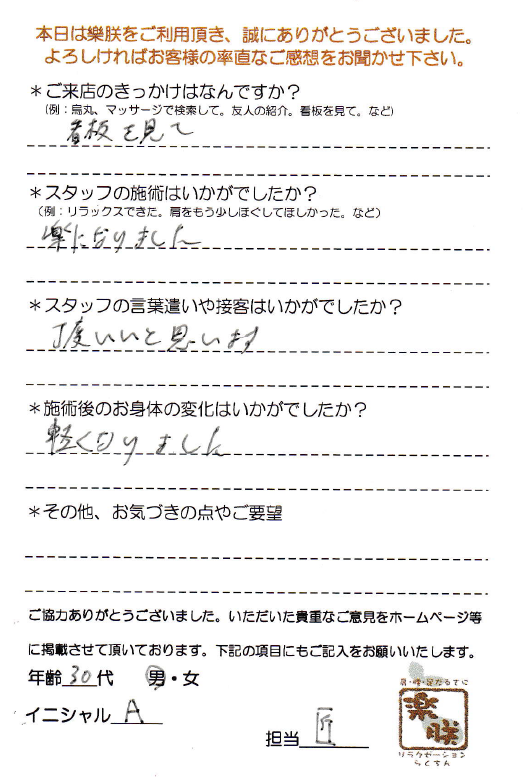 本日は樂朕をご利用頂き、誠にありがとうございました。
よろしければお客様の率直なご感想をお聞かせ下さい。
＊ご来店のきっかけはなんですか？
(例：烏丸、マッサージで検索して。友人の紹介。看板を見て。など)
看板を見て
＊スタッフの施術はいかがでしたか？
(例：リラックスできた。肩をもう少しほぐしてほしかった。など)
楽になりました
＊スタッフの言葉遣いや接客はいかがでしたか？
丁度いいと思います
＊施術後のお身体の変化はいかがでしたか？
軽くなりました
＊その他、お気づきの点やご要望
ご協力ありがとうございました。いただいた貴重なご意見をホームページ等
に掲載させて頂いております。下記の項目にもご記入をお願いいたします。
年齢 30 代 男・女
イニシャル A
担当 匠
樂朕
リラクゼーション
らくちん